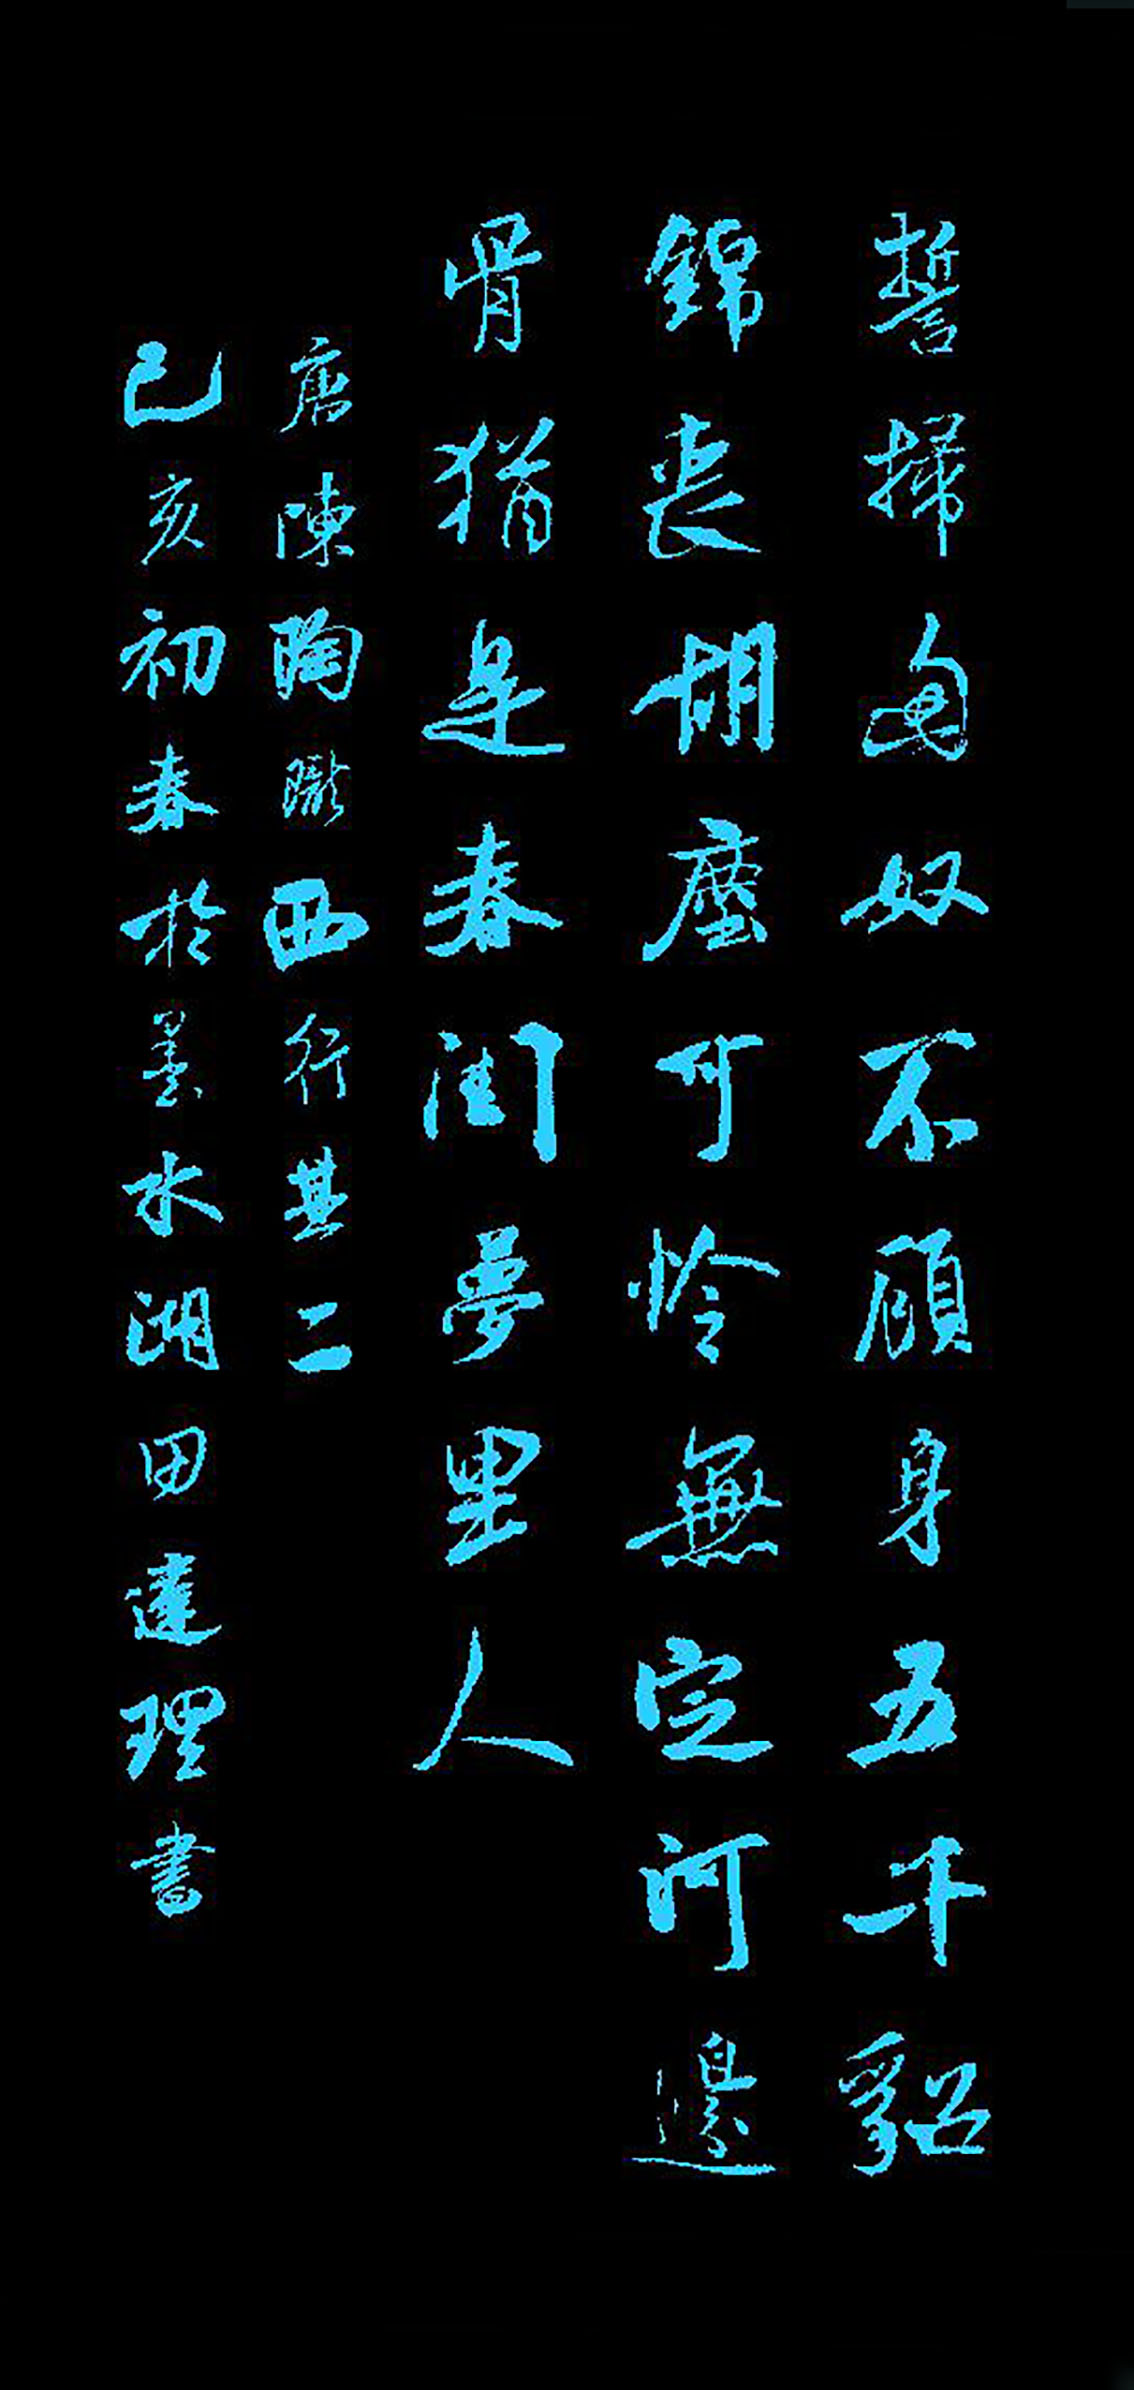 誓掃匈奴不顧身五千貂
錦喪胡塵可怜無定河邊
骨猶是春閨夢里人
唐陳陶隴西行其二
己亥初春於墨水湖田達理書